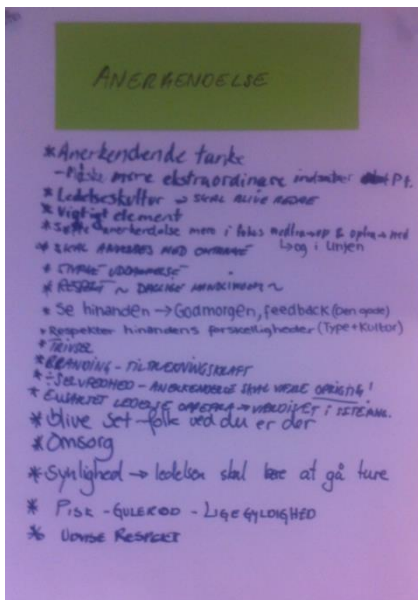 ANERKENDELSE
* Anerkendende tanke
- Måske mere ekstraordinære indsatser Pt.
* Ledelseskultur → SKAL BLIVE BEDRE
* Vigtigt element
* Sætte anerkendelse mere i fokus nedad og opad
↳ og i linjen
* SKAL ANVENDES MED OMTANKE
* STYRKE UDDANNELSE
* RESPEKT ~ DAGLIGE HANDLINGER ~
* Se hinanden → Godmorgen, feedback (Den gode)
* Respekter hinandens forskelligheder (Type + Kultur)
* TRIVSEL
* BRANDING - TILTRÆKNINGSKRAFT
* ÷ SELVFEDHED - ANERKENDELSE SKAL VÆRE OPRIGTIG!
* ENSARTET LEDELSE OPPEFRA → VÆRDISÆT I
* blive set - folk ved du er der
* Omsorg
* Synlighed → ledelsen skal lære at gå ture
* PISK - GULEROD - LIGEGYLDIGHED
* UDVISE RESPEKT